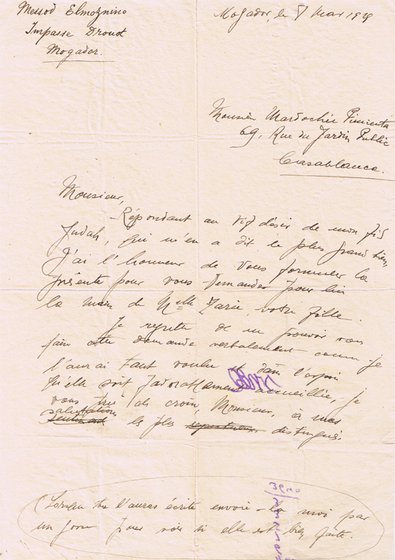 Messod Elmoznino
Impasse Droud
Mogador.
Mogador, le 8 Mai 19
Monsieur Mardochée Pimienta
69, Rue du Jardin Public
Casablanca.
Monsieur,
Répondant au vif désir de mon fils
Judah, qui m'en a dit le plus grand bien,
J'ai l'honneur de vous formuler la
présente pour vous demander pour lui
la main de Melle Marie, votre fille.
Je regrette de ne pouvoir vous
faire cette demande verbalement comme je
l'aurai tant voulu et dans l'espoir
qu'elle soit favorablement accueillie, je
vous prie de croire, Monsieur, à mes
salutations
les plus distinguées
(Lorsque tu l'auras écrite envoie-la moi par
un pour voir si elle est bien faite.